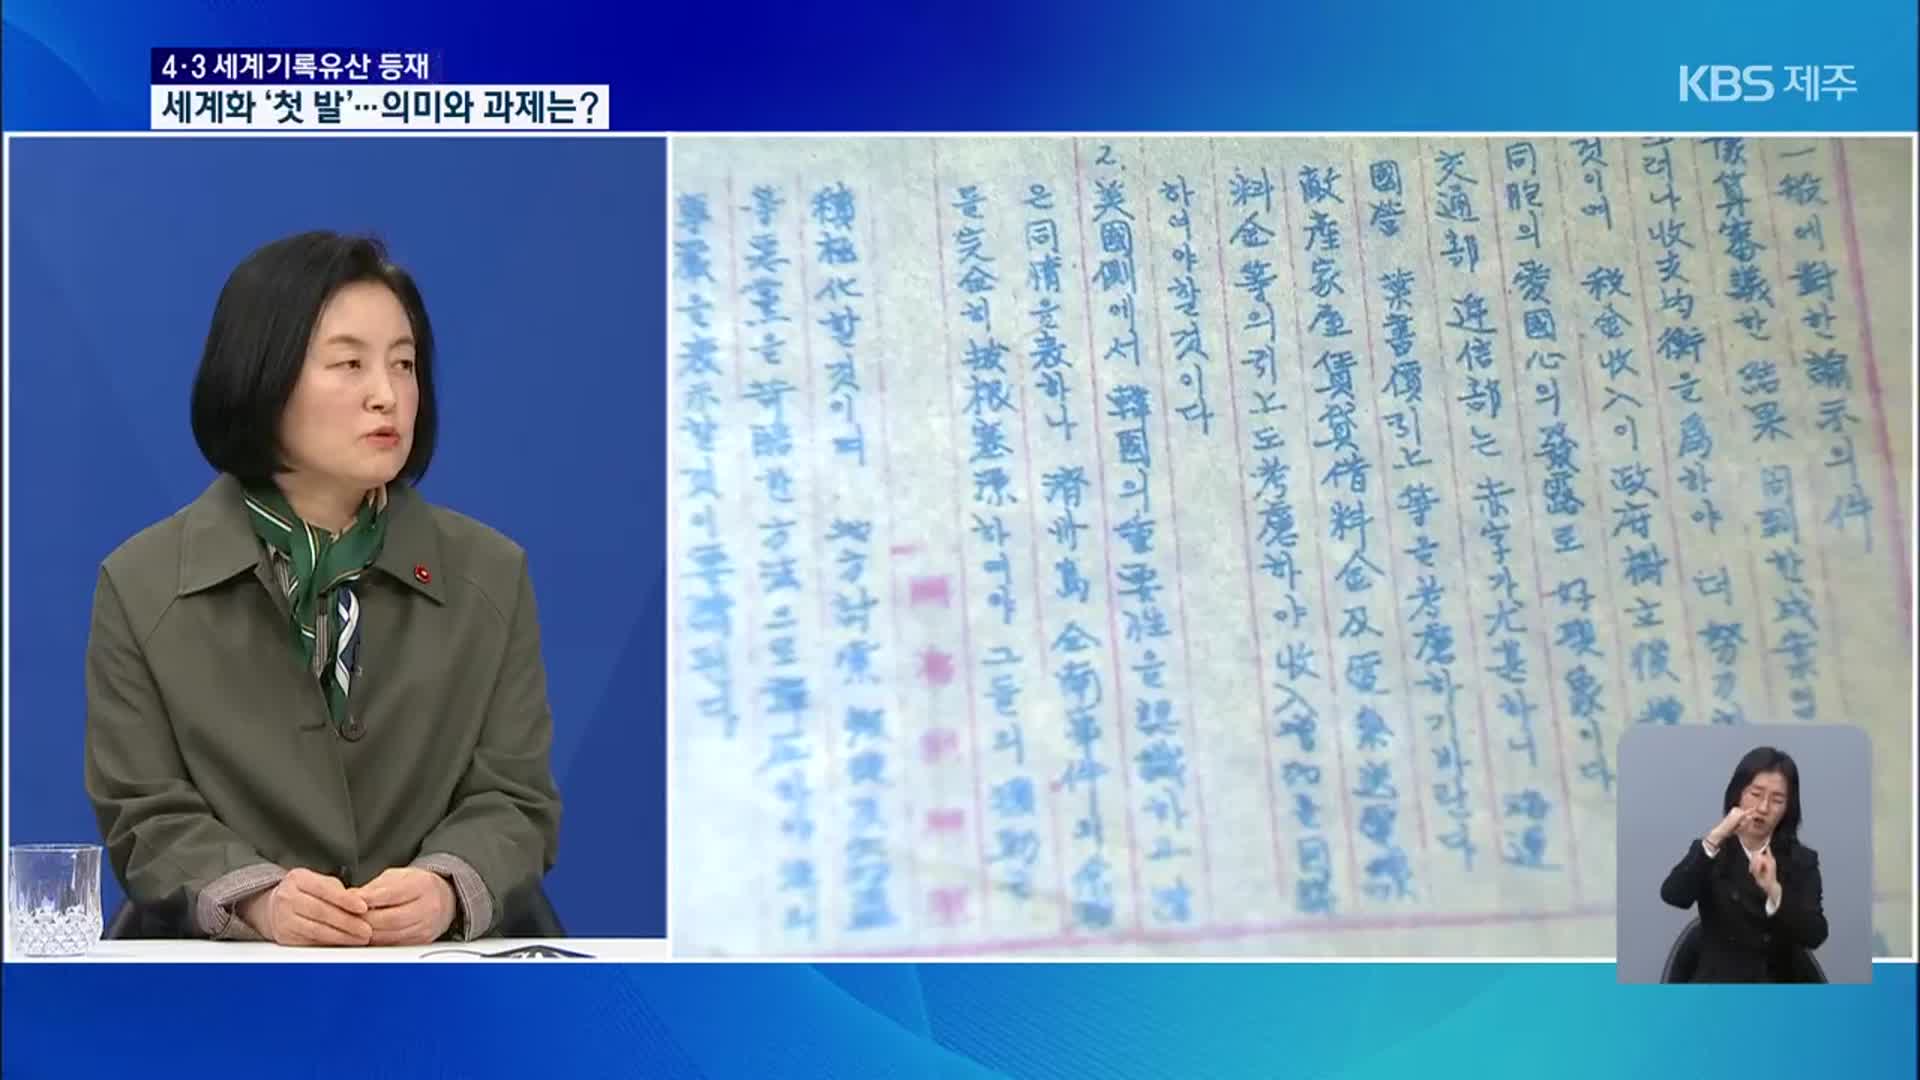 4·3 세계기록유산 등재
세계화 ‘첫 발’…의미와 과제는?
KBS 제주
一般에對한諭示의件
算審議한 結果 周到한成案
그러나收支均衡을爲하야 더 努力
것이며 稅金收入이政府樹立後增
同胞의愛國心의發露로 好現象이다
交通部 逓信部는 赤字가尤甚하니 海運
國營 葉書價引上等은考慮하기바란다
敵産家屋賃貸借料金及
料金等의引上도考慮하야收入增加를目
하여야할것이다
2. 美國側에서 韓國의重要性을認識하고 많
은同情을表하나 濟州島 全南事件의
完全히拔根塞源하여야그들의援助는
積極化할것이며 地方討索 叛徒及
等惡黨을苛酷한方法으로彈압하야法의
尊嚴을表示할것이要請된다